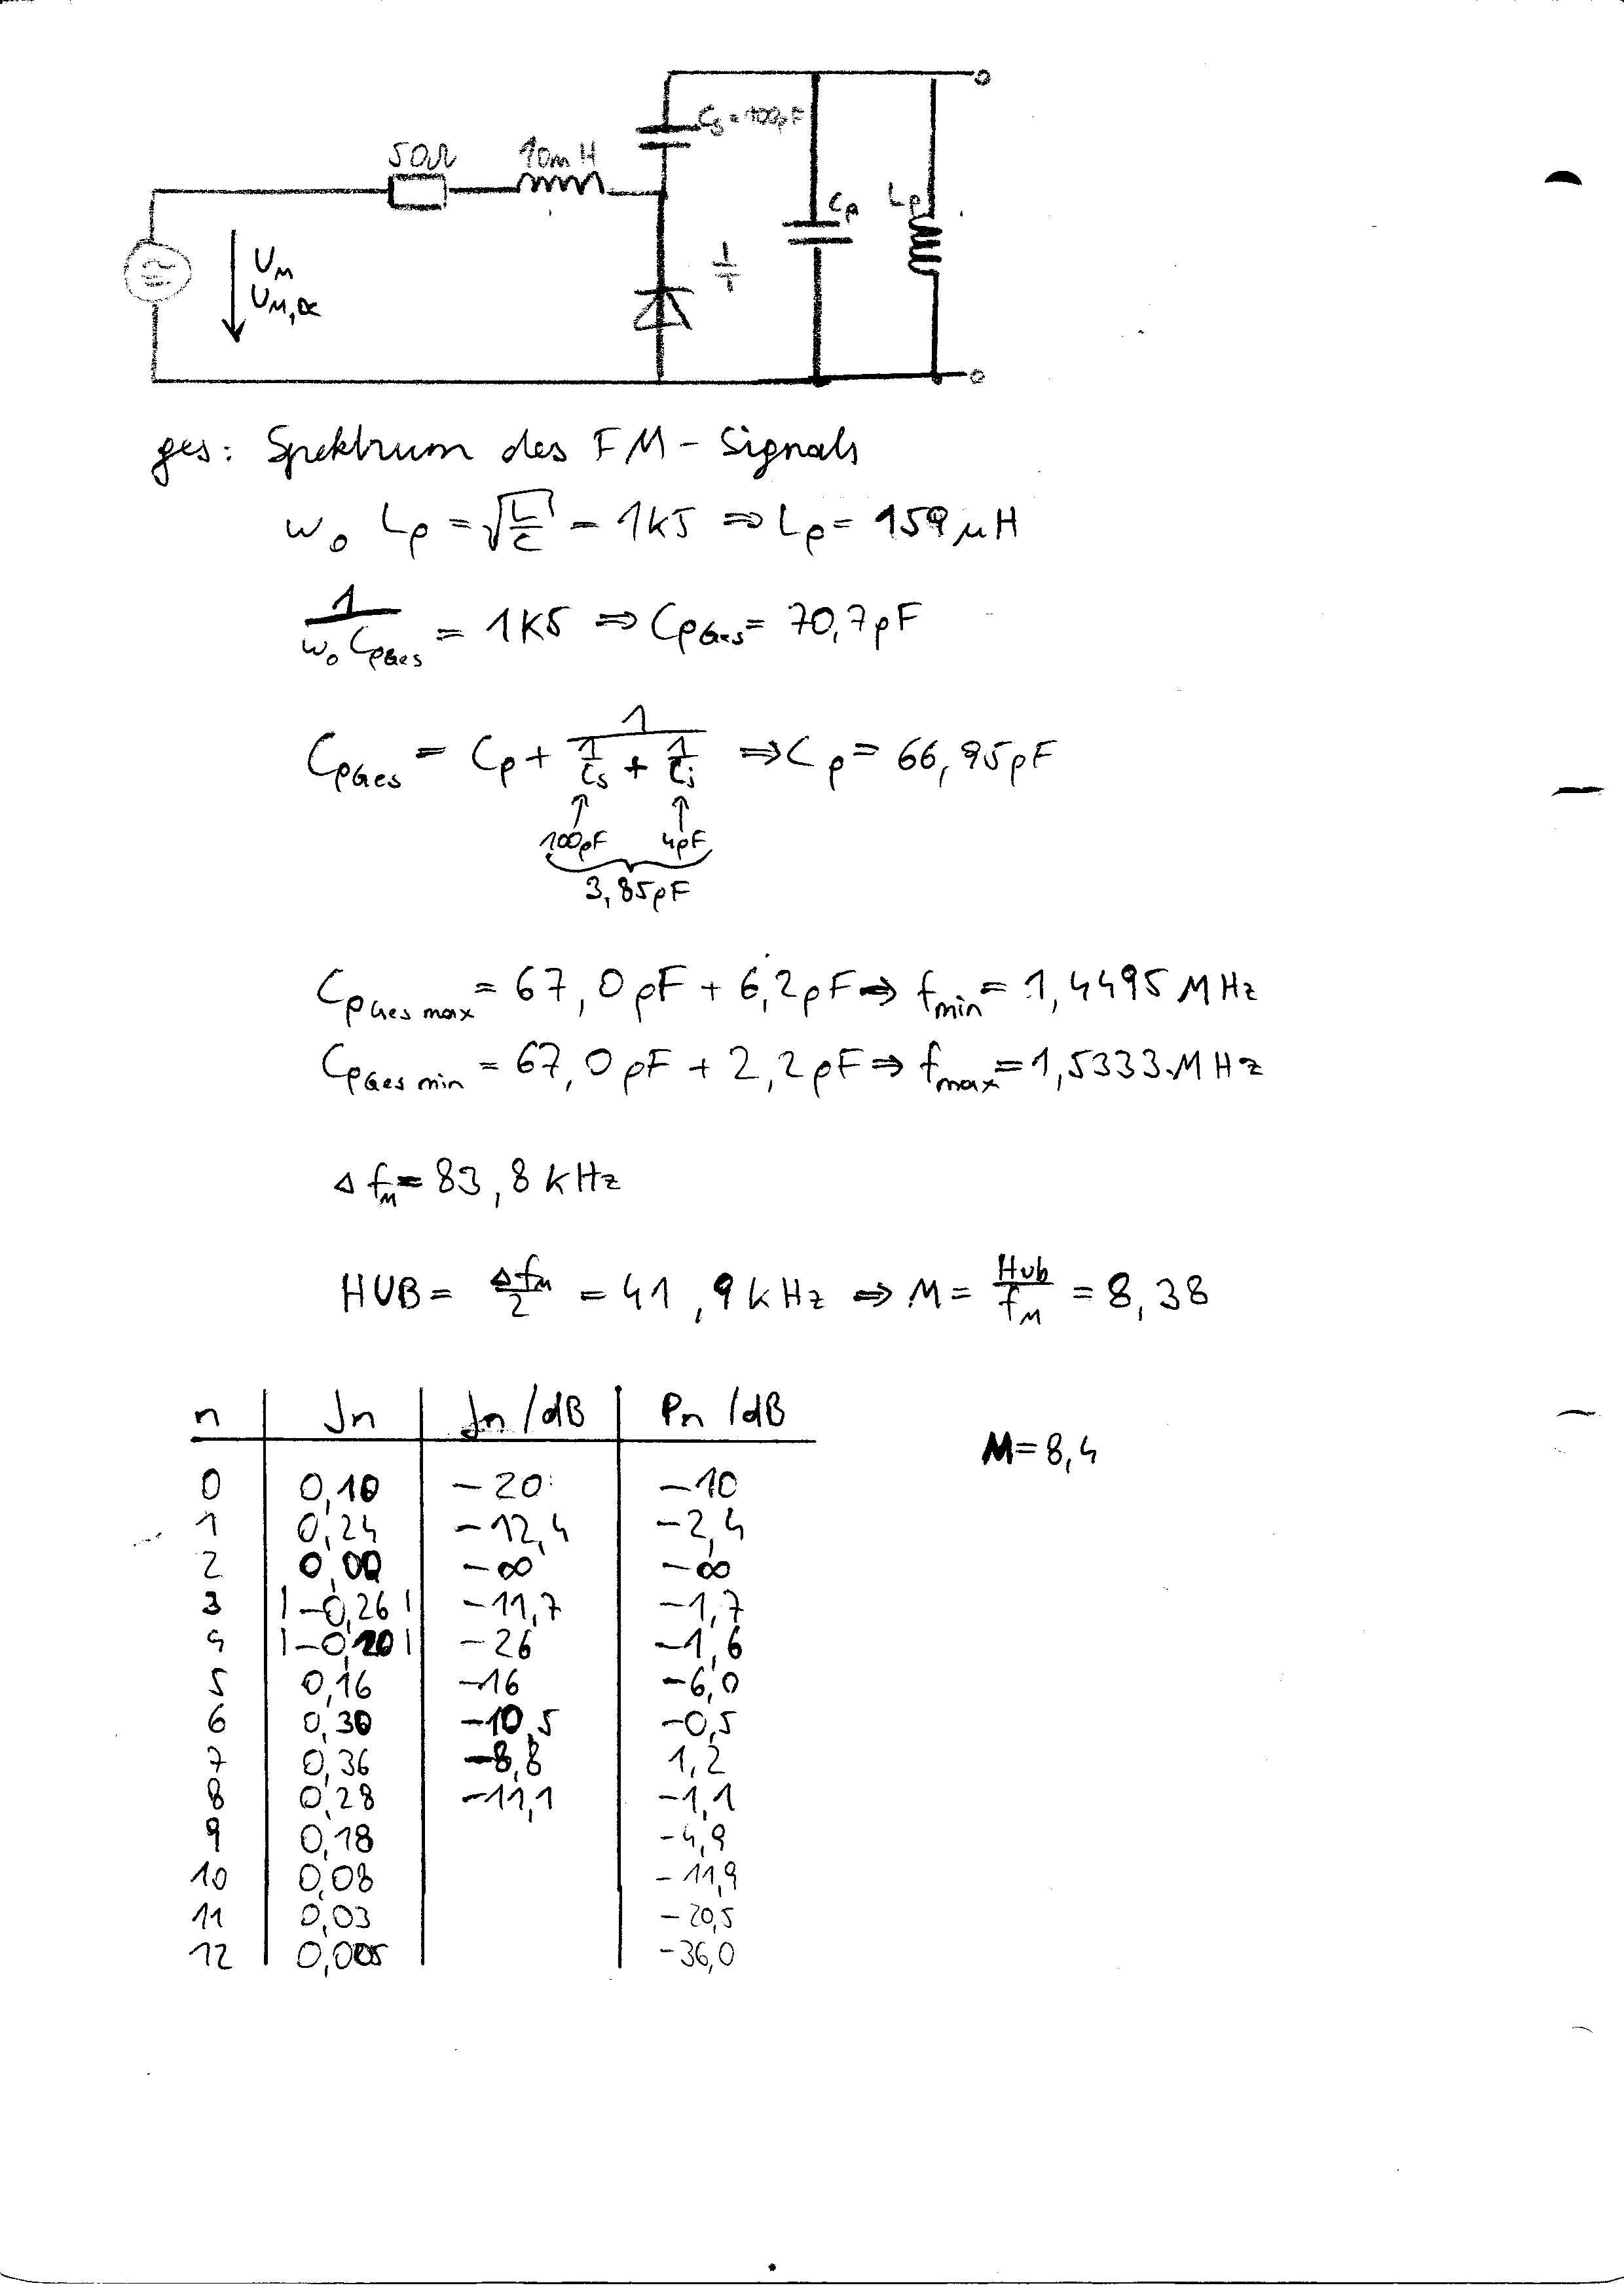 50Ω
10mH
Cs = 100pF
Cp
Lp
UM
UM,DC
ges: Spektrum des FM-Signals
ω0 Lp = √(L/C) = 1k5 ⇒ Lp = 159 μH
1/(ω0 CpGes) = 1k5 ⇒ CpGes = 70,7pF
CpGes = Cp + 1/(1/Cs + 1/Cj) ⇒ Cp = 66,95pF
↑ ↑
100pF 4pF
3,85pF
CpGes max = 67,0pF + 6,2pF ⇒ fmin = 1,4495 MHz
CpGes min = 67,0pF + 2,2pF ⇒ fmax = 1,5333 MHz
Δ fM = 83,8 kHz
HUB = ΔfM/2 = 41,9 kHz ⇒ M = Hub/fM = 8,38
n Jn Jn /dB Pn /dB
M = 8,4
0 0,10 -20 -10
1 0,24 -12,4 -2,4
2 0,00 -∞ -∞
3 |-0,26| -11,7 -1,7
4 |-0,10| -26 -1,6
5 0,16 -16 -6,0
6 0,30 -10,5 -0,5
7 0,36 -8,8 1,2
8 0,28 -11,1 -1,1
9 0,18 -4,9
10 0,08 -11,9
11 0,03 -20,5
12 0,005 -36,0